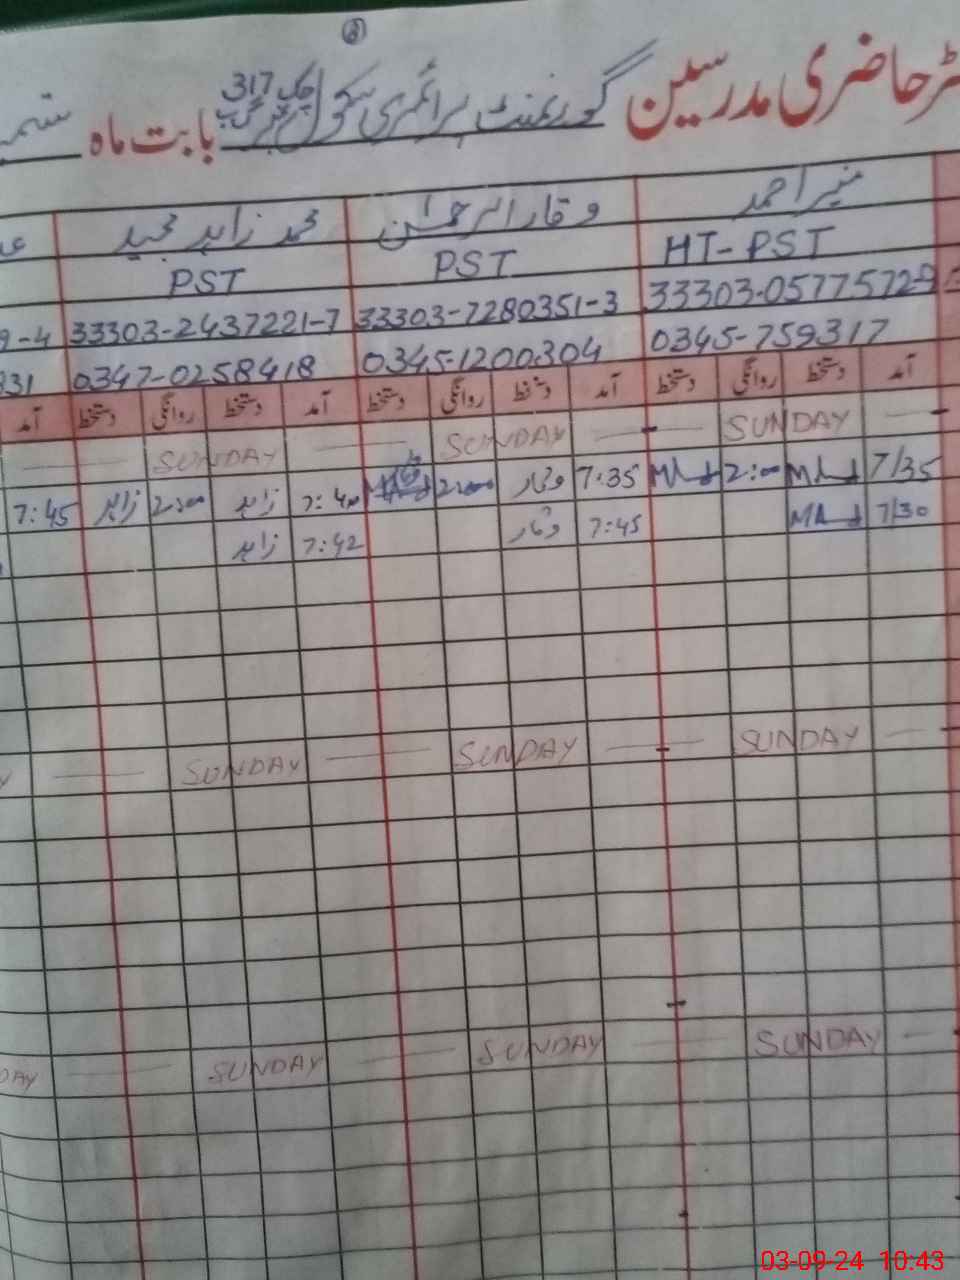 حاضری مدرسین گورنمنٹ پرائمری سکول چک نمبر 317 گ ب بابت ماہ ستمبر
منیر احمد وقار الرحمٰن محمد زاہد مجید
HT-PST PST PST
33303-0577572-9 33303-7280351-3 33303-2437221-7 9-4
0345-759317 0345-1200304 0347-0258418 331
آمد دستخط روانگی دستخط آمد دستخط روانگی دستخط آمد دستخط روانگی دستخط آمد
SUNDAY SUNDAY SUNDAY
7/35 2:00 7:35 وقار 2:00 7:40 زاہد 2:00 زاہد 7:45
7/30 MA 7:45 وقار 7:42 زاہد
SUNDAY SUNDAY SUNDAY Y
SUNDAY SUNDAY SUNDAY DAY
03-09-24 10:43